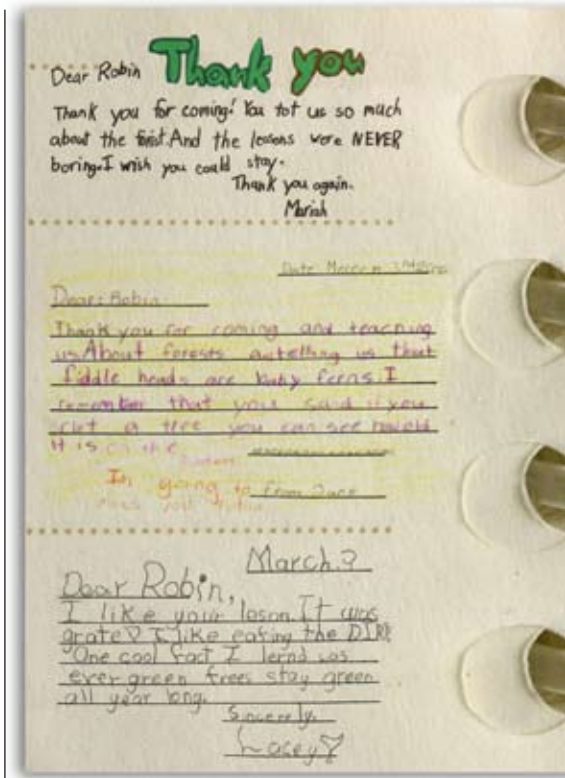 Dear Robin Thank you
Thank you for coming! You tot us so much
about the forist. And the lessons were NEVER
boring. I wish you could stay.
Thank you again.
Mariah
Date March
Dear: Robin
Thank you for coming and teaching
us. About forests telling us that
fiddle heads are baby ferns. I
remember that you said if you
a tree you can see
it is on the
Im going to from
miss you
March.3
Dear Robin,
I like your leson. It was
grate I like eating the DIRP
One cool fact I lernd was
ever green trees stay green
all year long.
Sincerely,
Lacey